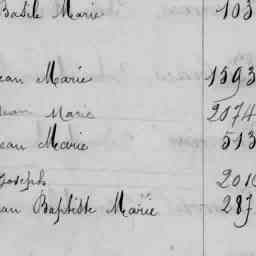 Basile Marie 103
ean Marie 1593
Jean Marie 2074
ean Marie 513
Joseph 2010
ean Baptiste Marie 287